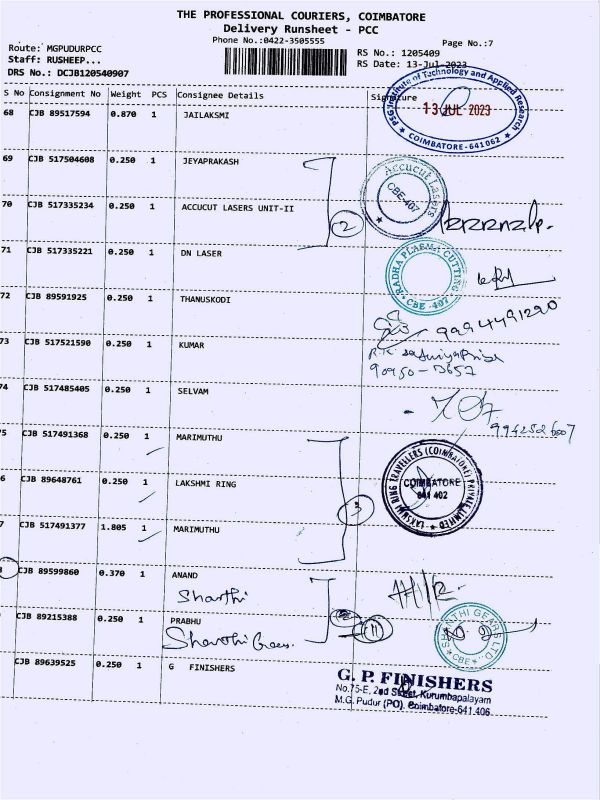 THE PROFESSIONAL COURIERS, COIMBATORE
Delivery Runsheet - PCC
Phone No.:0422-3505555
Page No.:7
Route: MGPUDURPCC
Staff: RUSHEEP...
DRS No.: DCJB120540907
RS No.: 1205409
RS Date: 13-Jul-2023
S No Consignment No Weight PCS Consignee Details Signature
68 CJB 89517594 0.870 1 JAILAKSMI
PSG Institute of Technology and Applied Research
13 JUL 2023
★ COIMBATORE-641062 ★
69 CJB 517504608 0.250 1 JEYAPRAKASH
70 CJB 517335234 0.250 1 ACCUCUT LASERS UNIT-II
2
Accucut Lasers
CBE-407
71 CJB 517335221 0.250 1 DN LASER
RADHA PLASMA CUTTING
CBE -407
72 CJB 89591925 0.250 1 THANUSKODI
9994491290
73 CJB 517521590 0.250 1 KUMAR
90950-
74 CJB 517485405 0.250 1 SELVAM
5 CJB 517491368 0.250 1 MARIMUTHU
6 CJB 89648761 0.250 1 LAKSHMI RING
3
LAKSHMI RING TRAVELLERS (COIMBATORE) PRIVATE LIMITED
COIMBATORE
641 402
7 CJB 517491377 1.805 1 MARIMUTHU
8 CJB 89599860 0.370 1 ANAND
Sharthi
9 CJB 89215388 0.250 1 PRABHU
11
SHANTHI GEARS LTD.
★ CBE ★
CJB 89639525 0.250 1 G FINISHERS
G. P. FINISHERS
No.75-E, 2nd Street, Kurumbapalayam
M.G. Pudur (PO). Coimbatore-641 406